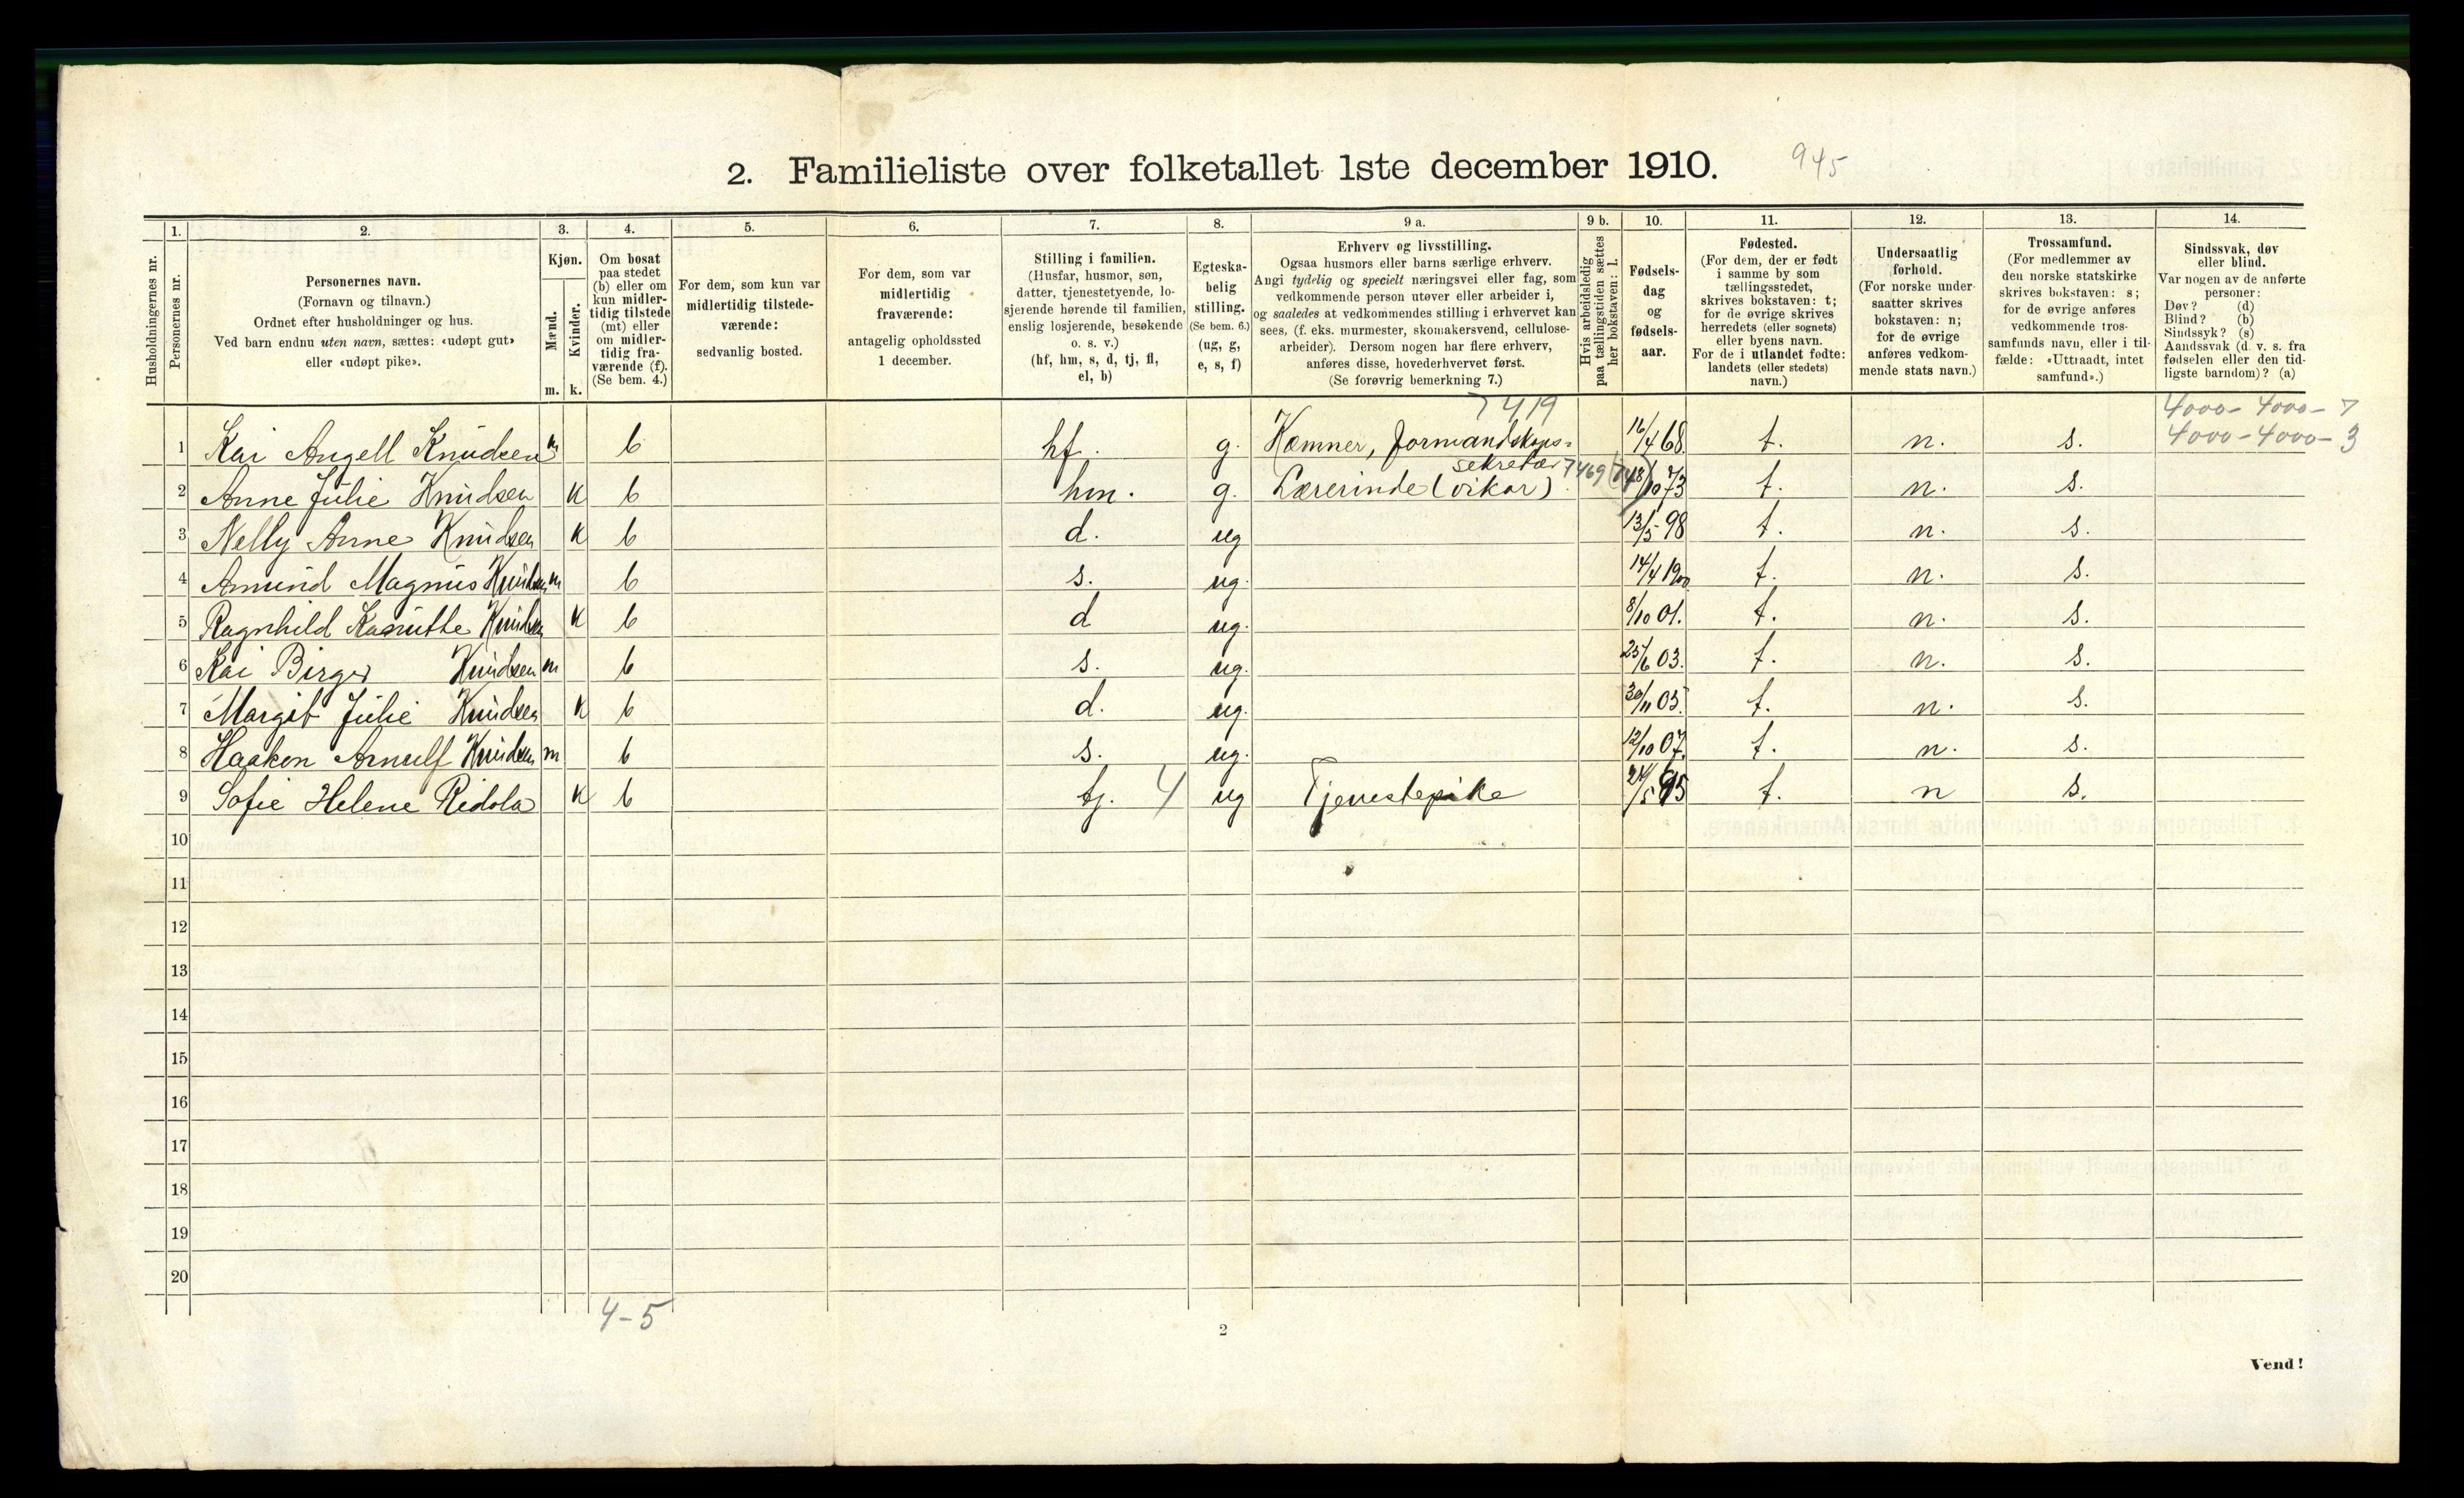 2. Familieliste over folketallet 1ste december 1910. 945
1. 2. 3. 4. 5. 6. 7. 8. 9 a. 9 b. 10. 11. 12. 13. 14.
Husholdningernes nr.
Personernes nr.
Personernes navn.
(Fornavn og tilnavn.)
Ordnet efter husholdninger og hus.
Ved barn endnu uten navn, sættes: «udøpt gut»
eller «udøpt pike».
Kjøn.
Mænd.
m.
Kvinder.
k.
Om bosat
paa stedet
(b) eller om
kun midler-
tidig tilstede
(mt) eller
om midler-
tidig fra-
værende (f).
(Se bem. 4.)
For dem, som kun var
midlertidig tilstede-
værende:
sedvanlig bosted.
For dem, som var
midlertidig
fraværende:
antagelig opholdssted
1 december.
Stilling i familien.
(Husfar, husmor, søn,
datter, tjenestetyende, lo-
sjerende hørende til familien,
enslig losjerende, besøkende
o. s. v.)
(hf, hm, s, d, tj, fl,
el, b)
Egteska-
belig
stilling.
(Se bem. 6.)
(ug, g,
e, s, f)
Erhverv og livsstilling.
Ogsaa husmors eller barns særlige erhverv.
Angi tydelig og specielt næringsvei eller fag, som
vedkommende person utøver eller arbeider i,
og saaledes at vedkommendes stilling i erhvervet kan
sees, (f. eks. murmester, skomakersvend, cellulose-
arbeider). Dersom nogen har flere erhverv,
anføres disse, hovederhvervet først.
(Se forøvrig bemerkning 7.)
Hvis arbeidsledig
paa tællingstiden sættes
her bokstaven: l.
Fødsels-
dag
og
fødsels-
aar.
Fødested.
(For dem, der er født
i samme by som
tællingsstedet,
skrives bokstaven: t;
for de øvrige skrives
herredets (eller sognets)
eller byens navn.
For de i utlandet fødte:
landets (eller stedets)
navn.)
Undersaatlig
forhold.
(For norske under-
saatter skrives
bokstaven: n;
for de øvrige
anføres vedkom-
mende stats navn.)
Trossamfund.
(For medlemmer av
den norske statskirke
skrives bokstaven: s;
for de øvrige anføres
vedkommende tros-
samfunds navn, eller i til-
fælde: «Uttraadt, intet
samfund».)
Sindssvak, døv
eller blind.
Var nogen av de anførte
personer:
Døv? (d)
Blind? (b)
Sindssyk? (s)
Aandssvak (d. v. s. fra
fødselen eller den tid-
ligste barndom)? (a)
7419 4000-4000-7
1 Kai Angell Knudsen m b hf. g. Kæmner, formandskaps= 16/4 68. t. n. s. 4000-4000-3
sekretær 7469
2 Anne Julie Knudsen k b hm. g. Lærerinde (vikar) 18/10 73 t. n. s.
3 Nelly Anne Knudsen k b d. ug 13/5 98 t. n. s.
4 Amund Magnus Knudsen m b s. ug. 14/4 1900 t. n. s.
5 Ragnhild Kanutte Knudsen k b d ug. 8/10 01. t. n. s.
6 Kai Birger Knudsen m b s. ug. 25/6 03. t. n. s.
7 Margit Julie Knudsen k b d. ug. 30/11 05. t. n. s.
8 Haakon Arnulf Knudsen m b s. ug. 12/10 07. t. n. s.
9 Sofie Helene Ridola k b tj. 4 ug Tjenestepike 24/5 95 t. n s.
10
11
12
13
14
15
16
17
18
19
20
4-5
2
Vend!